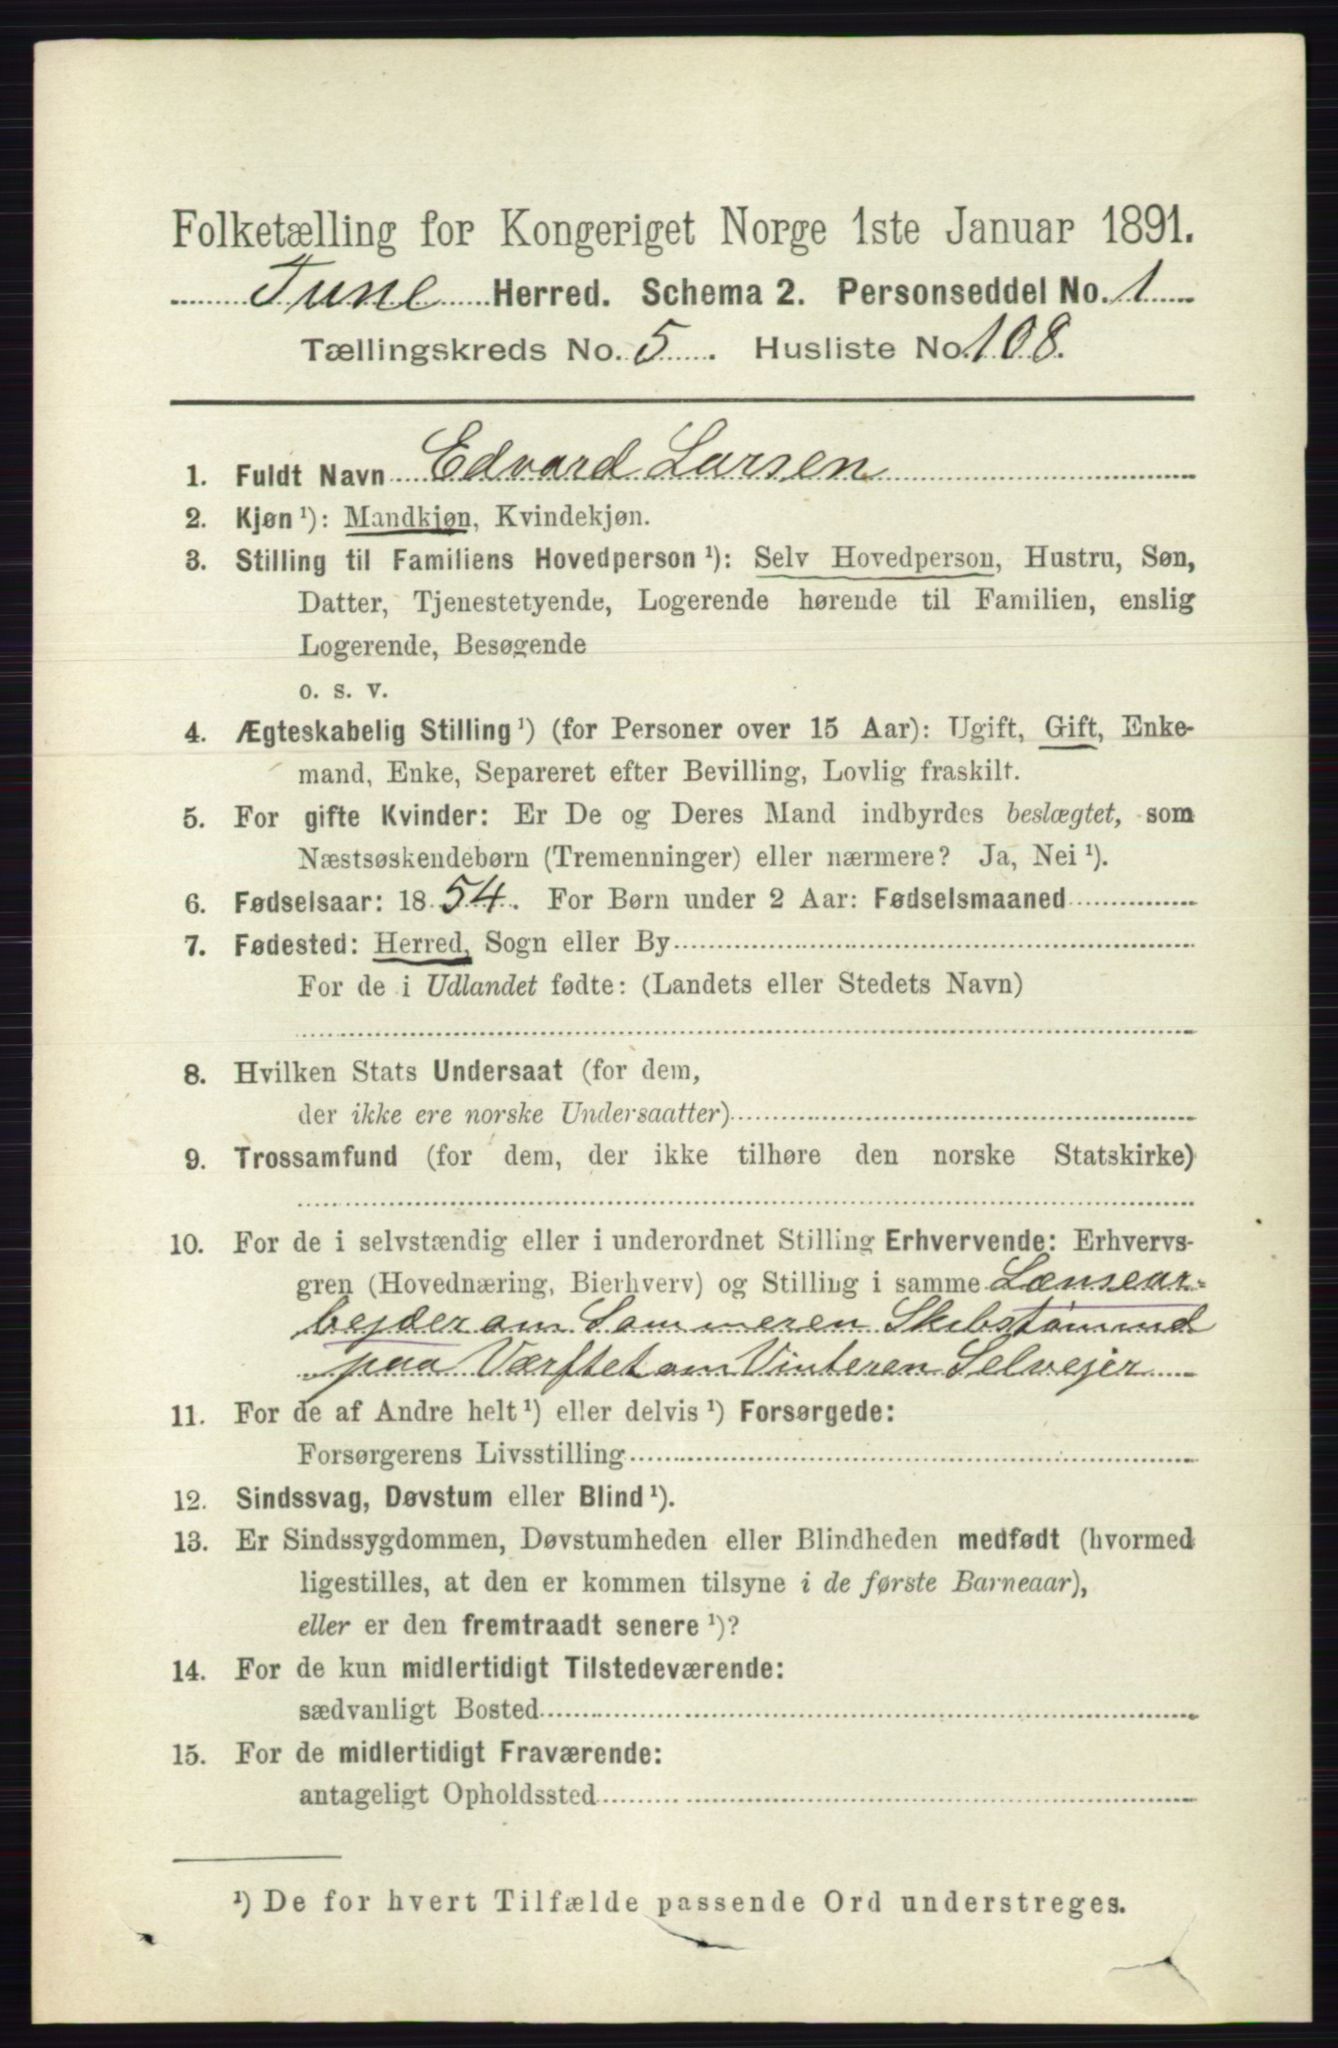 Folketælling for Kongeriget Norge 1ste Januar 1891.
Tune Herred. Schema 2. Personseddel No. 1
Tællingskreds No. 5. Husliste No. 108.
1. Fuldt Navn Edvard Larsen
2. Kjøn ¹): Mandkjøn, Kvindekjøn.
3. Stilling til Familiens Hovedperson ¹): Selv Hovedperson, Hustru, Søn,
Datter, Tjenestetyende, Logerende hørende til Familien, enslig
Logerende, Besøgende
o. s. v.
4. Ægteskabelig Stilling ¹) (for Personer over 15 Aar): Ugift, Gift, Enke-
mand, Enke, Separeret efter Bevilling, Lovlig fraskilt.
5. For gifte Kvinder: Er De og Deres Mand indbyrdes beslægtet, som
Næstsøskendebørn (Tremenninger) eller nærmere? Ja, Nei ¹).
6. Fødselsaar: 1854. For Børn under 2 Aar: Fødselsmaaned
7. Fødested: Herred, Sogn eller By
For de i Udlandet fødte: (Landets eller Stedets Navn)
8. Hvilken Stats Undersaat (for dem,
der ikke ere norske Undersaatter)
9. Trossamfund (for dem, der ikke tilhøre den norske Statskirke)
10. For de i selvstændig eller i underordnet Stilling Erhvervende: Erhvervs-
gren (Hovednæring, Bierhverv) og Stilling i samme Lænsear-
bejder om Sommeren Skibstømmd
paa Værftet om Vinteren Selvejer
11. For de af Andre helt ¹) eller delvis ¹) Forsørgede:
Forsørgerens Livsstilling
12. Sindssvag, Døvstum eller Blind ¹).
13. Er Sindssygdommen, Døvstumheden eller Blindheden medfødt (hvormed
ligestilles, at den er kommen tilsyne i de første Barneaar),
eller er den fremtraadt senere ¹)?
14. For de kun midlertidigt Tilstedeværende:
sædvanligt Bosted
15. For de midlertidigt Fraværende:
antageligt Opholdssted
¹) De for hvert Tilfælde passende Ord understreges.